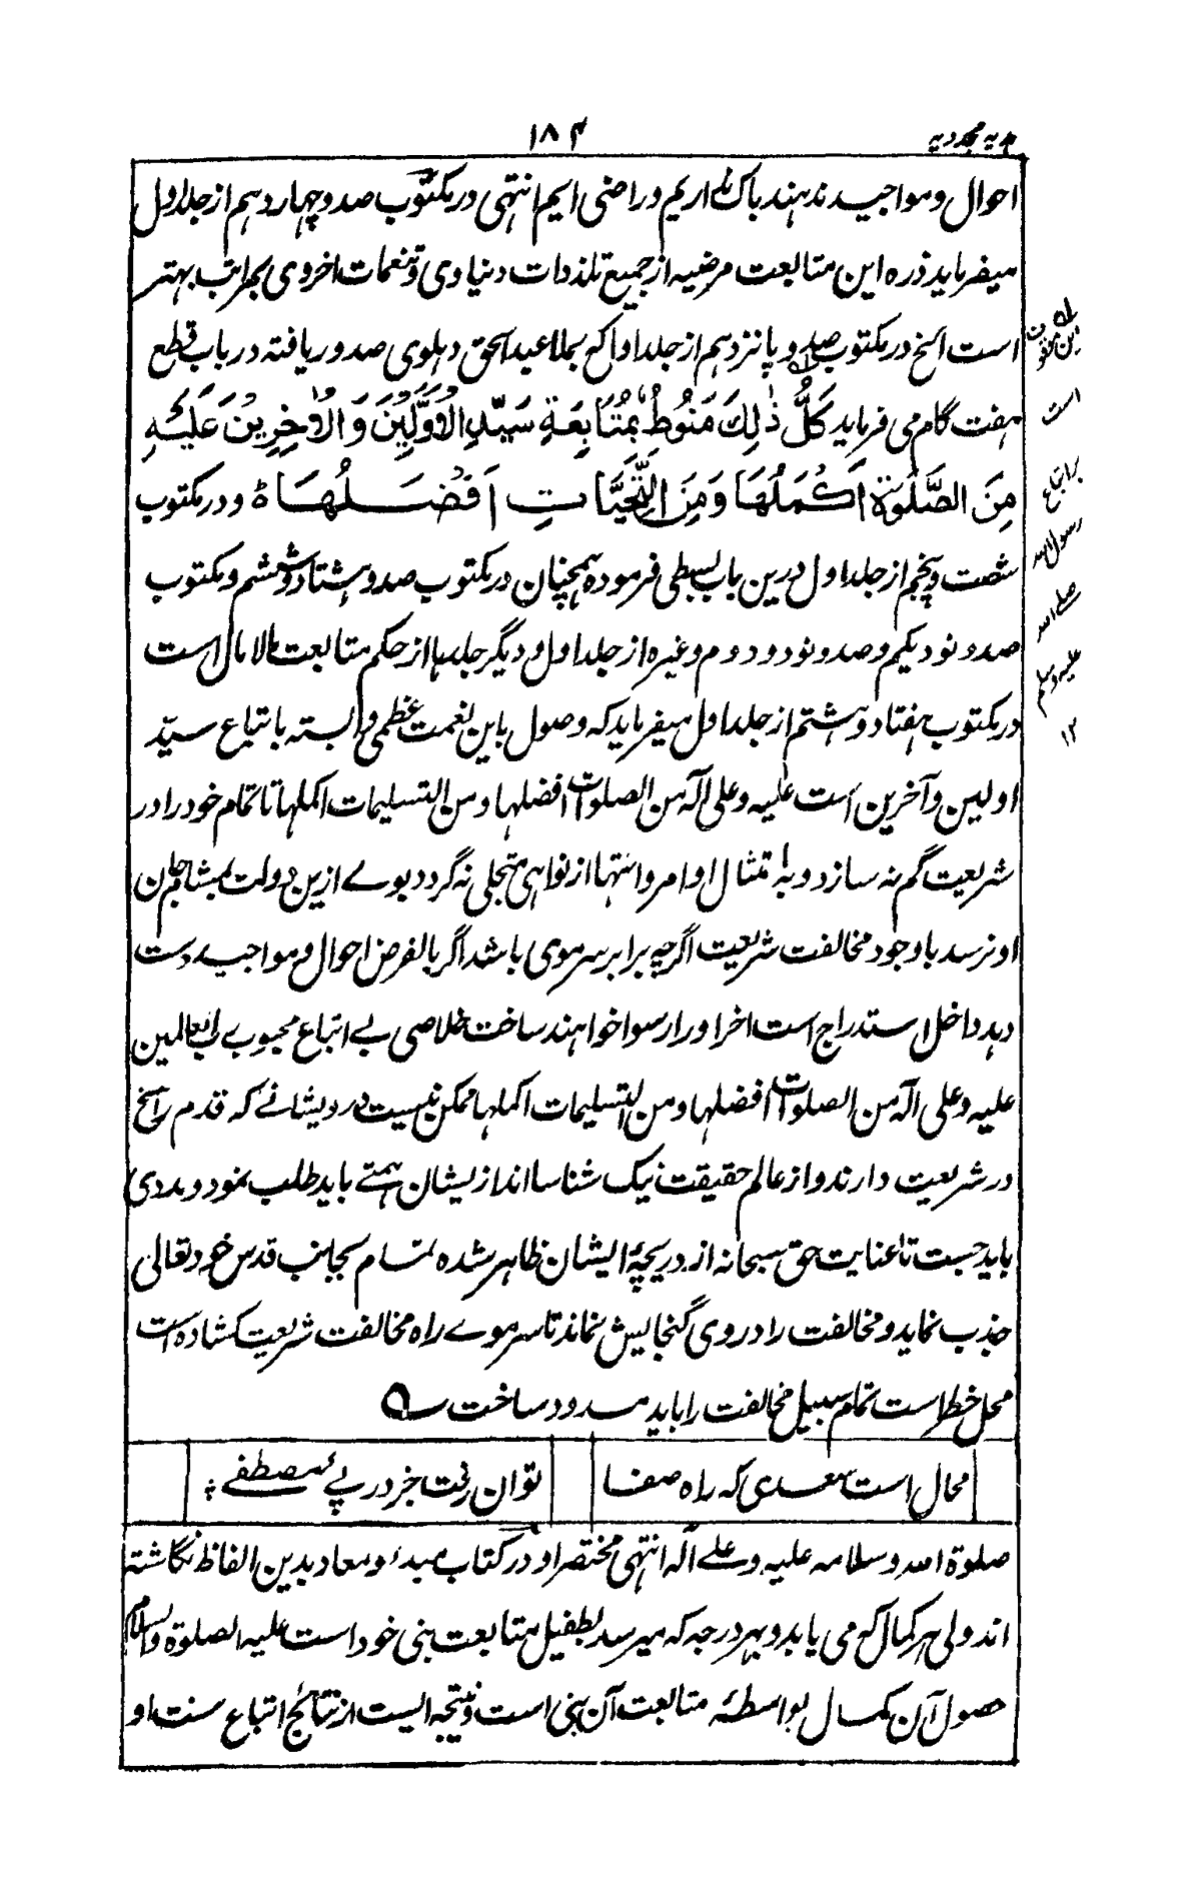 هدیه مجددیه
۱۸۴
احوال و مواجید ندهند باک نداریم و راضی ایم انتهی در مکتوب صد و چهاردهم از جلد اول
میفرماید ذره این متابعت مرضیه از جمیع تلذذات دنیاوی و تنعمات اخروی بمراتب بهتر
است الخ در مکتوب صد و پانزدهم از جلد اول که بملا عبد الحق دهلوی صدور یافته در باب قطع
هفت گام می فرماید كُلُّ ذٰلِكَ مَنُوطٌ بِمُتَابِعَةِ سَيِّدِ الْاَوَّلِيْنَ وَ الْاٰخِرِيْنَ عَلَيْهِ
مِنَ الصَّلٰوةِ اَكْمَلُهَا وَ مِنَ التَّحِيَّاتِ اَفْضَلُهَا ه و در مکتوب
شصت و پنجم از جلد اول درین باب بسطی فرموده همچنان در مکتوب صد و هشتاد و ششم و مکتوب
صد و نود یکم و صد و نود و دوم وغیره از جلد اول و دیگر جلدها از حکم متابعت مالا مال است
در مکتوب هفتاد و هشتم از جلد اول میفرماید که وصول باین نعمت عظمی وابسته باتباع سیّد
اولین و آخرین است علیه و علی آله من الصلوات افضلها و من التسلیمات اکملها تا تمام خود را در
شریعت گم نه سازد و به امتثال اوامر و انتها از نواهی متجلی نه گردد بوے ازین دولت بمشام جان
او نرسد با وجود مخالفت شریعت اگرچه برابر سر موی باشد اگر بالفرض احوال و مواجید دست
دهد داخل استدراج است اخر او را رسوا خواهند ساخت خلاصی بے اتباع محبوب رب العالمین
علیه و علی آله من الصلوات افضلها و من التسلیمات اکملها ممکن نیست درویشانے که قدم راسخ
در شریعت دارند و از عالم حقیقت نیک شناسا اند ازیشان همتے باید طلب نمود و مددی
باید جست تا عنایت حق سبحانه از دریچهٔ ایشان ظاهر شده تمام بجانب قدس خود تعالی
جذب نماید و مخالفت را در وی گنجایش نماند تا سر موے راه مخالفت شریعت کشاده است
محل خطر است تمام سبیل مخالفت را باید مسدود ساخت ؎
محال است سعدی که راه صفا
توان رفت جز در پے مصطفے ؛
صلوة الله و سلامه علیه و علے آله انتهی مختصرا و در کتاب مبدء و معاد بدین الفاظ نگاشته
اند ولی هر کمال که می یابد و بهر درجه که میرسد بطفیل متابعت نبی خود است علیه الصلوة والسلام
حصول آن کمال بواسطهٔ متابعت آن نبی است و نتیجه ایست از نتائج اتباع سنت او
است
بر اتباع
رسول الله
صلے الله
علیه وسلم
۱۲